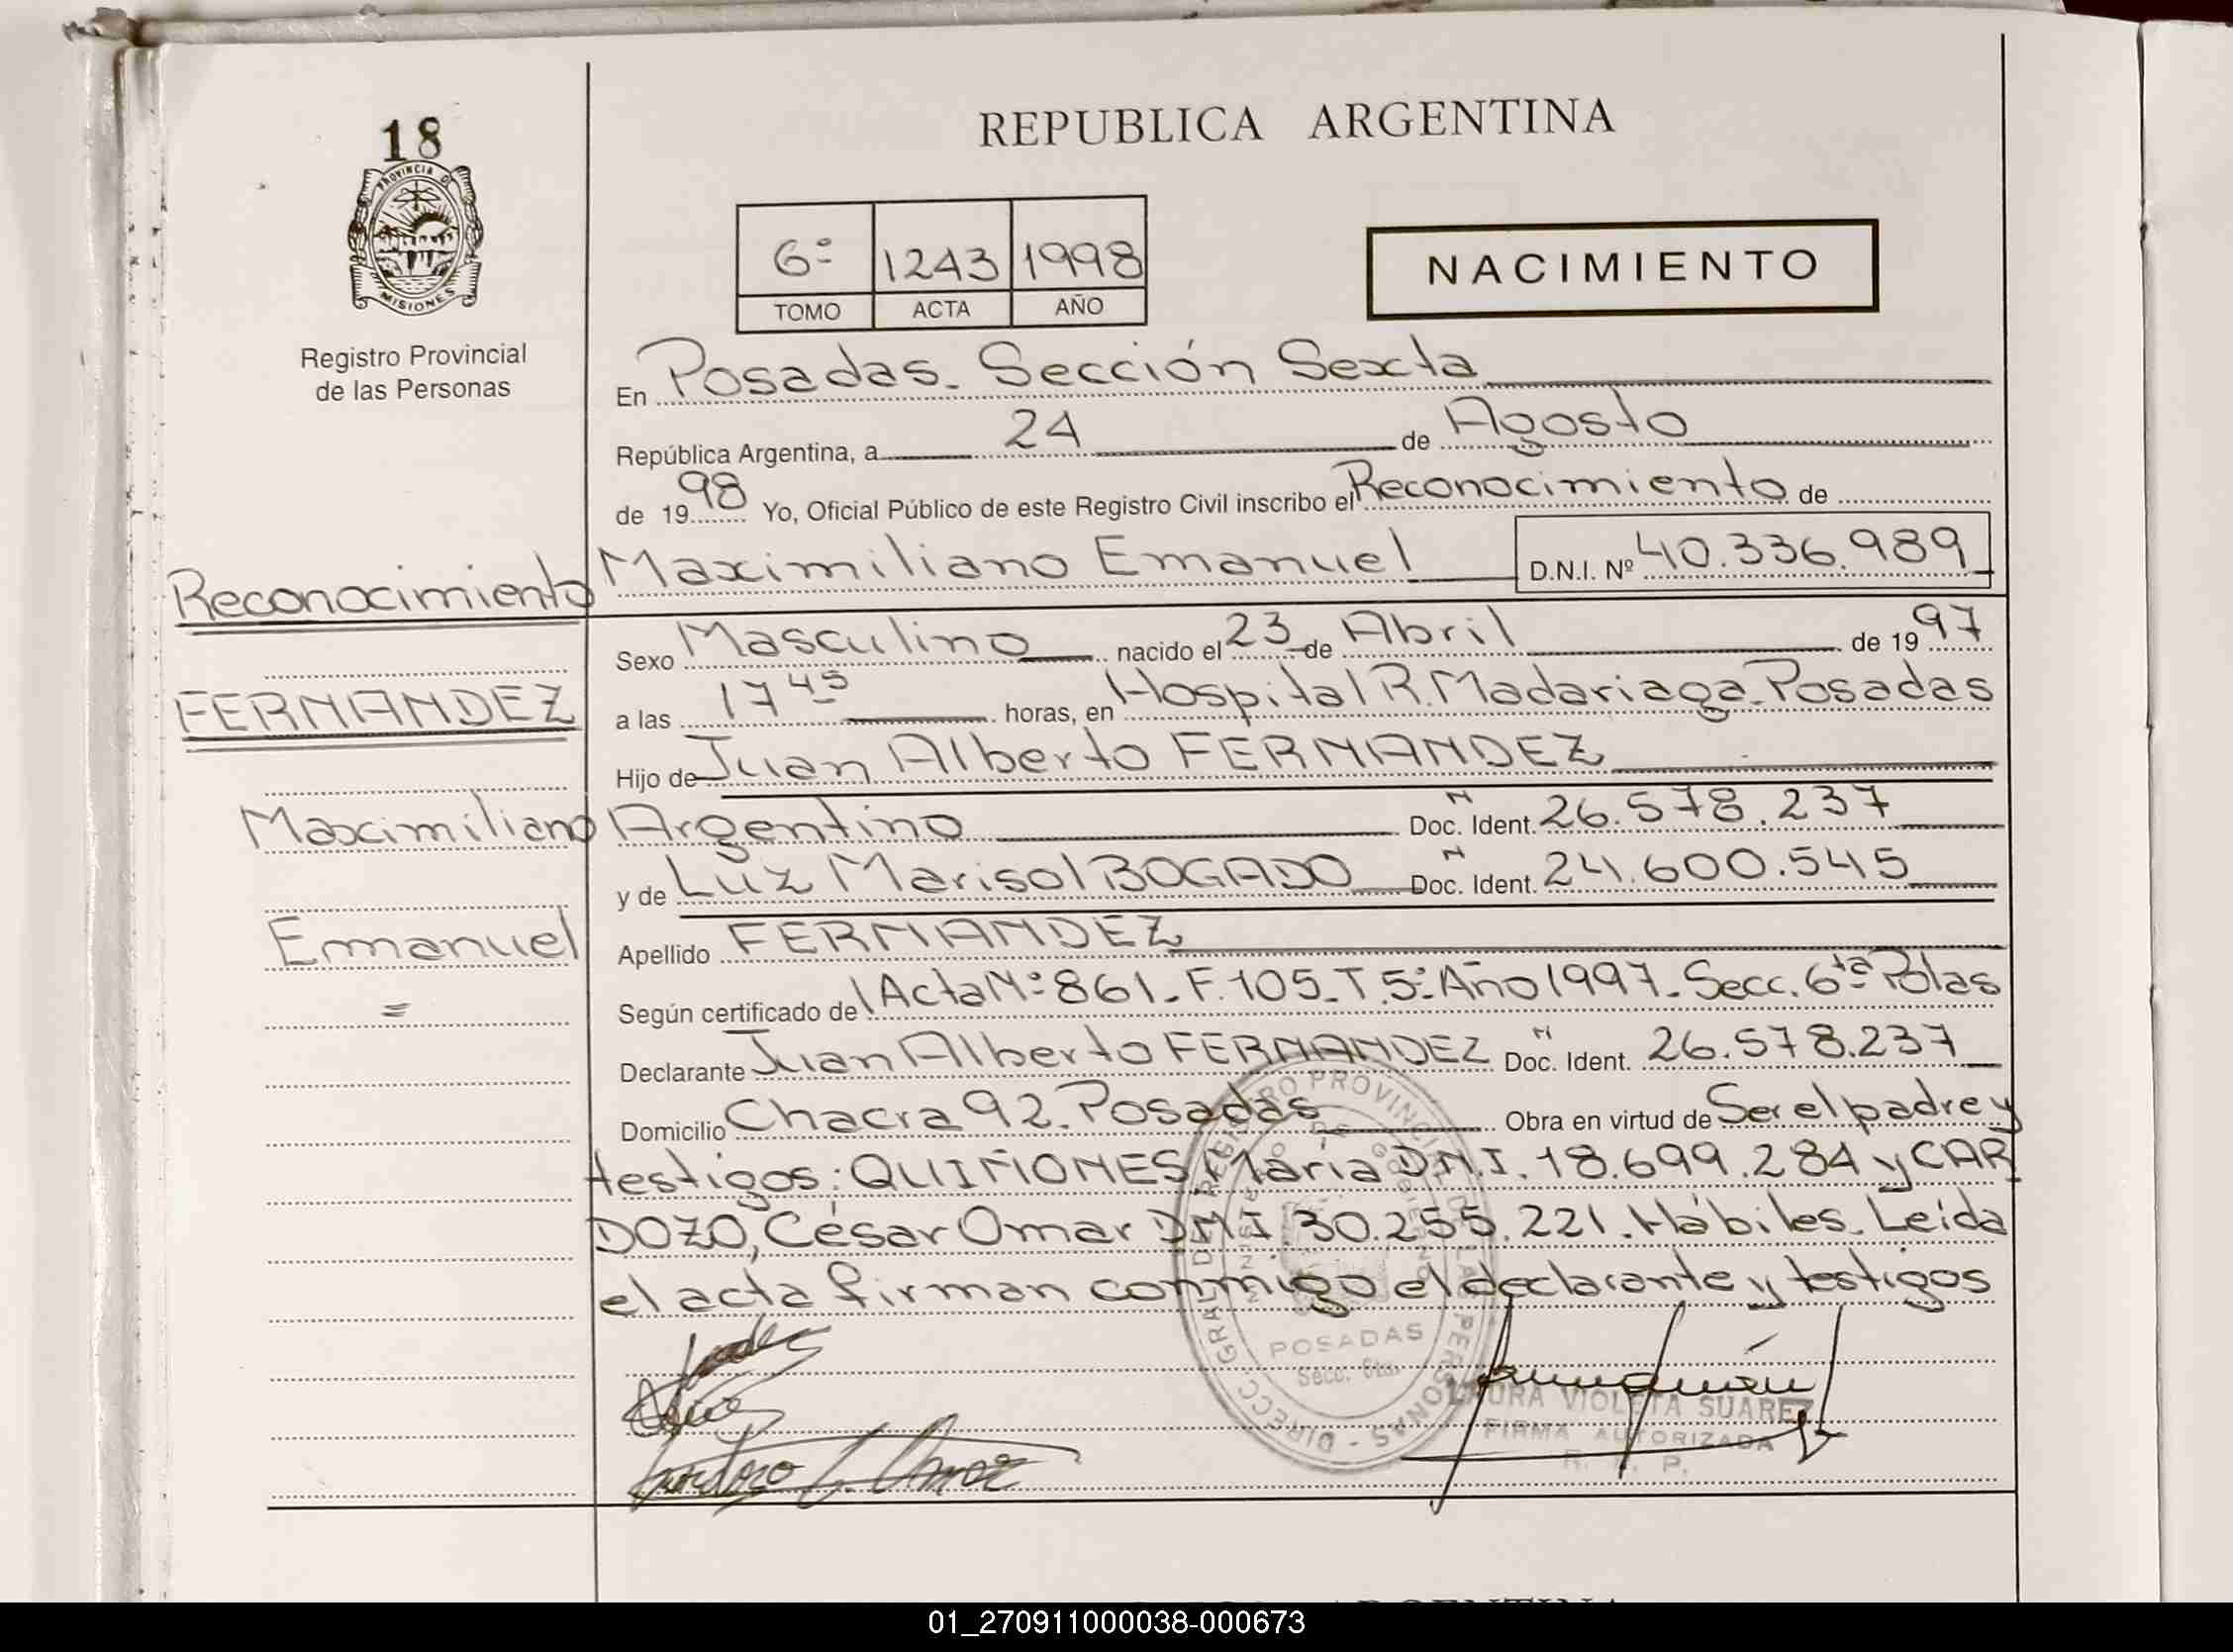 18
PROVINCIA DE
MISIONES
Registro Provincial
de las Personas
REPUBLICA ARGENTINA
6º 1243 1998
TOMO ACTA AÑO
NACIMIENTO
En Posadas. Sección Sexta
República Argentina, a 24 de Agosto
de 1998 Yo, Oficial Público de este Registro Civil inscribo el Reconocimiento de
Maximiliano Emanuel D.N.I. Nº 40.336.989
Reconocimiento
FERNANDEZ
Maximiliano
Emanuel
Sexo Masculino nacido el 23 de Abril de 1997
a las 17 45 horas, en Hospital R. Madariaga. Posadas
Hijo de Juan Alberto FERNANDEZ
Argentino Doc. N Ident. 26.578.237
y de Luz Marisol BOGADO Doc. N Ident. 24.600.545
Apellido FERNANDEZ
Según certificado del Acta Nº 861. F. 105. T. 5º Año 1997. Secc. 6ta Pdas
Declarante Juan Alberto FERNANDEZ Doc. N Ident. 26.578.237
Domicilio Chacra 92. Posadas Obra en virtud de Ser el padre y
testigos: QUIÑONES, María D.N.I. 18.699.284 y CAR
DOZO, César Omar DNI 30.255.221. Hábiles. Leída
el acta firman conmigo el declarante y testigos
DIRECC. GRAL. DEL REGISTRO PROVINCIAL DE LAS PERSONAS
MINISTERIO DE GOBIERNO
POSADAS
Secc. 6ta.
LAURA VIOLETA SUAREZ
FIRMA AUTORIZADA
R. P. P.
ARGENTINA
01_270911000038-000673